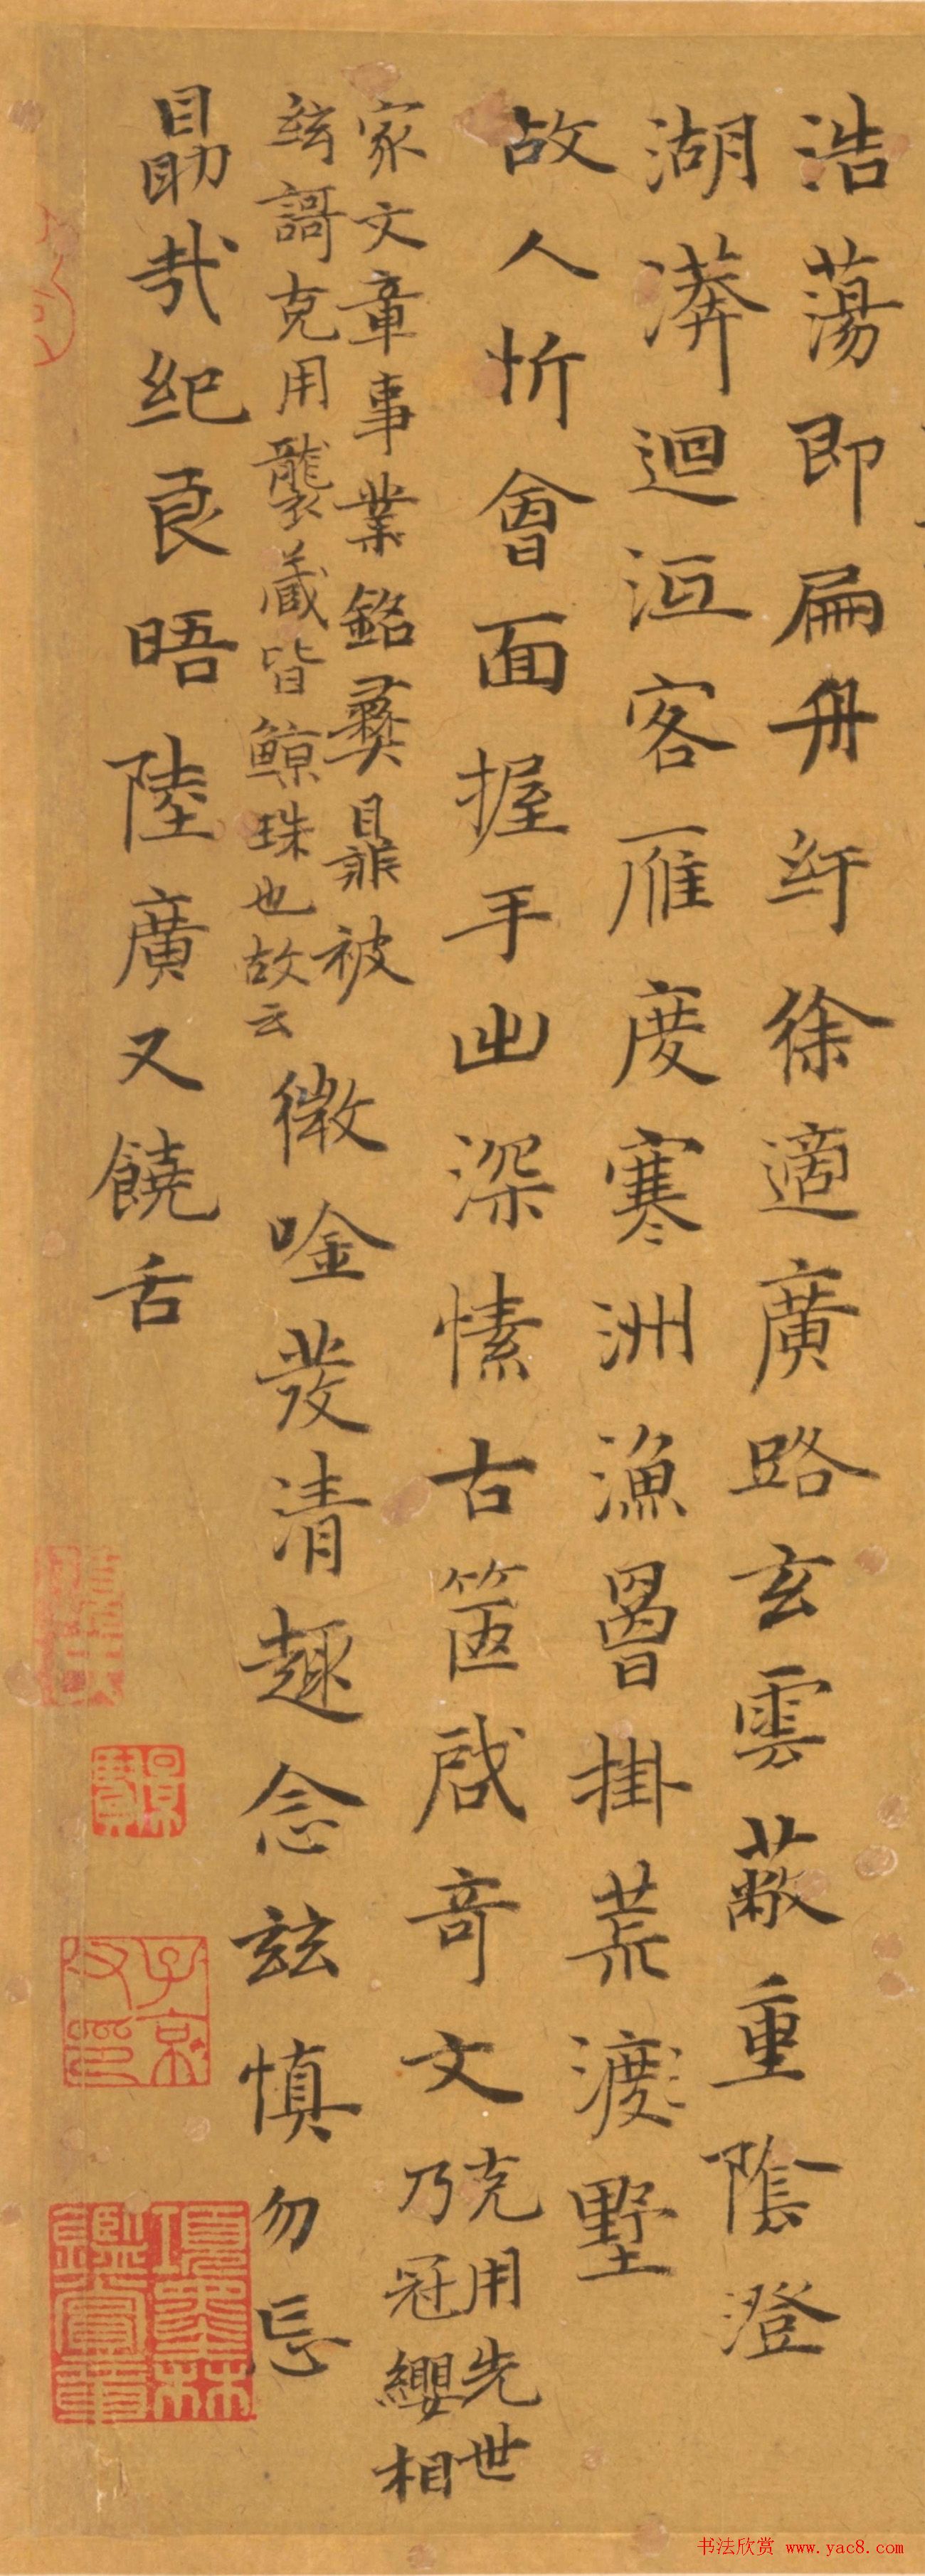 浩蕩即扁舟纡徐適廣路玄雲蔽重陰澄
湖漭迴沍客雁度寒洲漁罾掛荒渡墅
故人忻會面握手出深愫古箧啟奇文克用先世
乃冠纓相
家文章事業銘彝鼎被
絃謌克用襲藏皆鯨珠也故云
微唫發清趣念茲慎勿忘
勗哉纪良晤陸廣又饒舌
子京
父印
項墨林
鑑賞章
书法欣赏 www.yac8.com